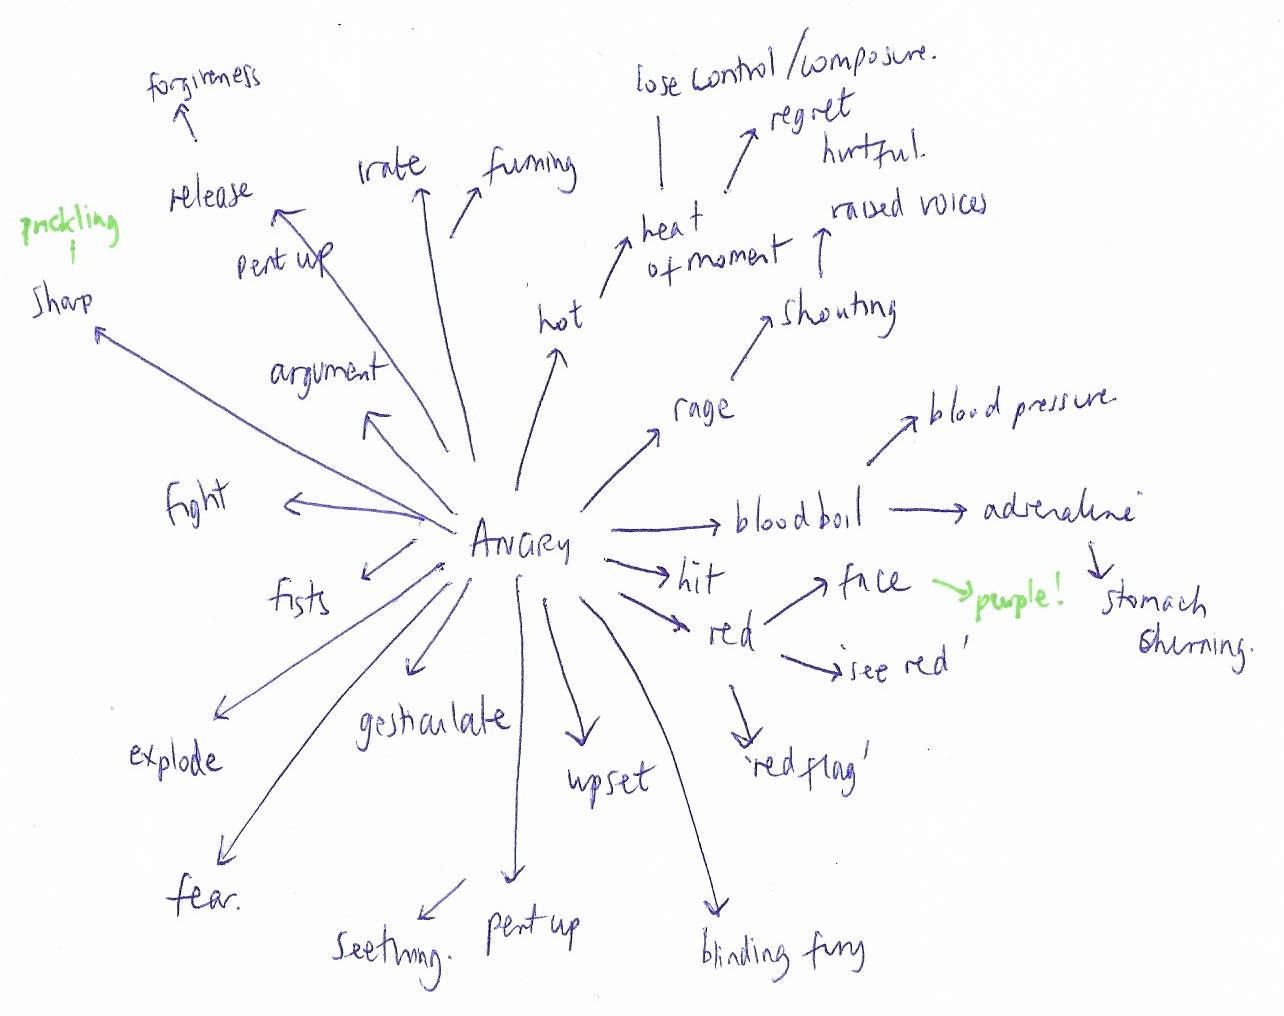 lose control / composure.
forgiveness
regret
hurtful.
irate
fuming
release
raised voices
prickling
heat
of moment
pent up
sharp
hot
shouting
argument
rage
blood pressure.
fight
blood boil
adrenaline
ANGRY
hit
face
purple!
stomach
churning.
fists
red
'see red'
gesticulate
explode
upset
'red flag'
fear.
seething.
pent up
blinding fury